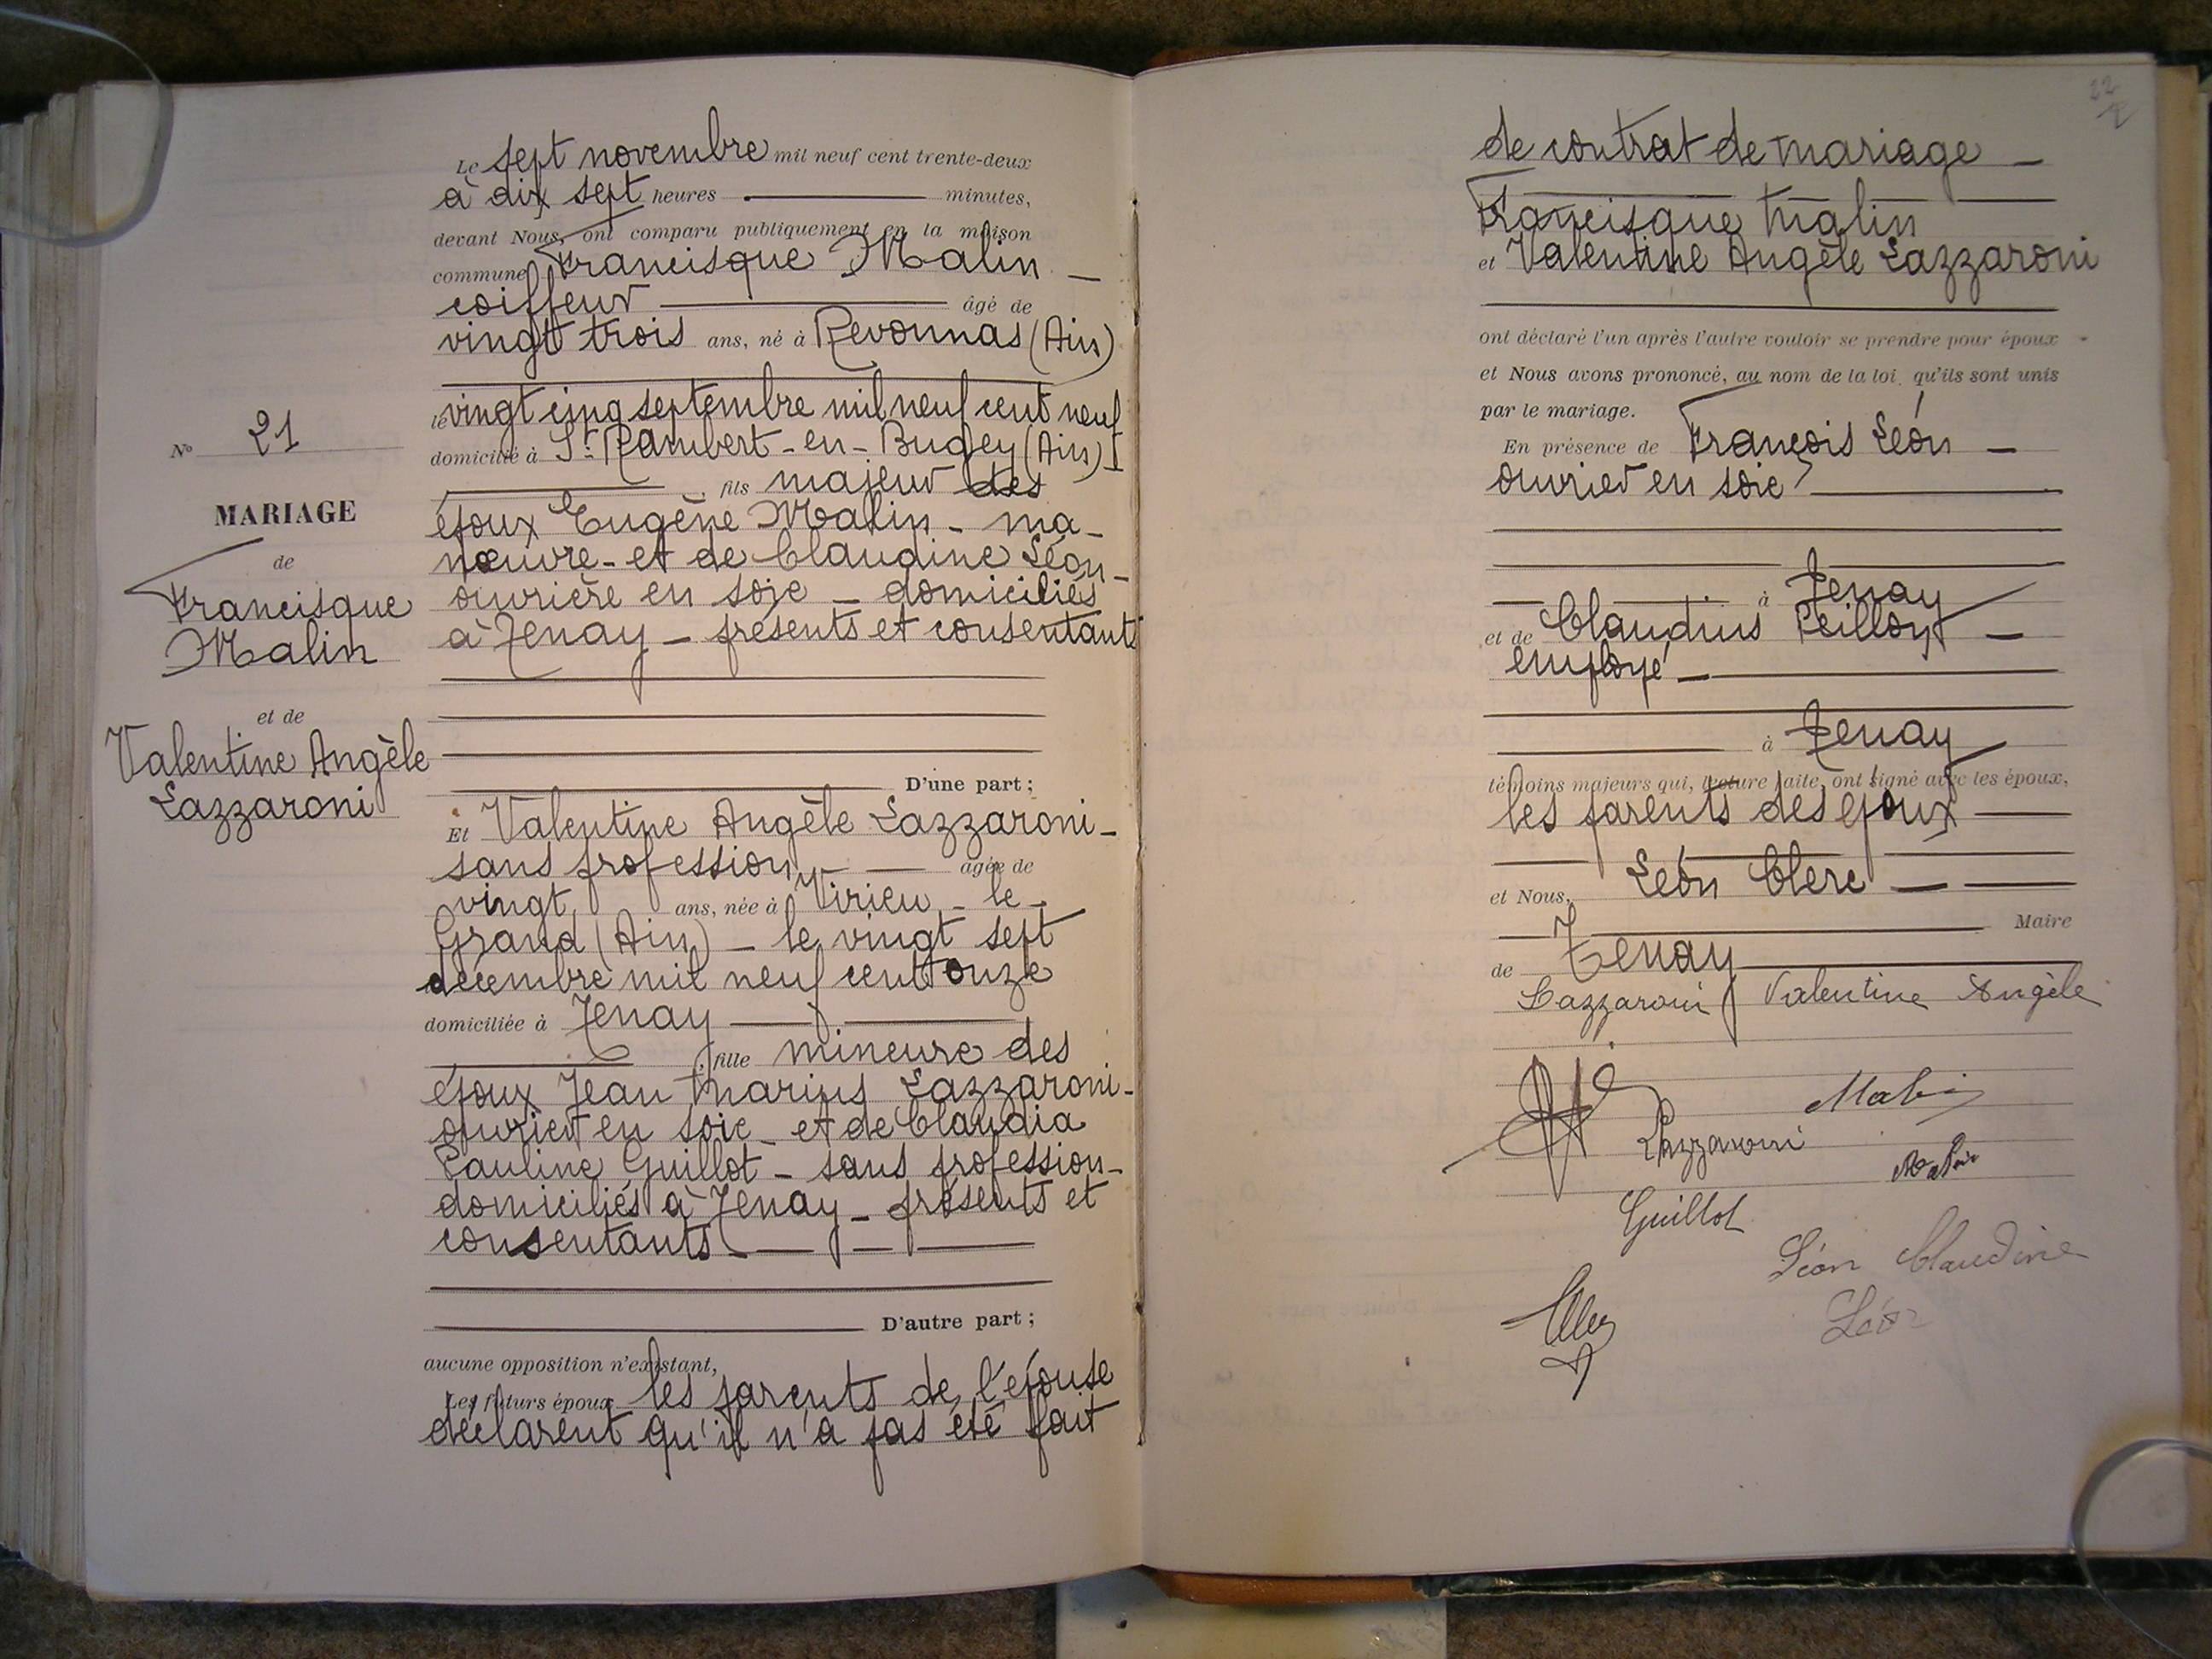 Le sept novembre mil neuf cent trente-deux
à dix sept heures minutes,
devant Nous, ont comparu publiquement en la maison
commune Francisque Malin
coiffeur âgé de
vingt trois ans, né à Revonnas (Ain)
le vingt cinq septembre mil neuf cent neuf
domicilié à St Rambert-en-Bugey (Ain)
fils majeur des
époux Eugène Malin - ma-
nœuvre - et de Claudine Léon -
ouvrière en soie - domiciliés
à Tenay - présents et consentants
D'une part ;
Et Valentine Angèle Lazzaroni -
sans profession âgée de
vingt ans, née à Virieu - le -
Grand (Ain) - le vingt sept
décembre mil neuf cent onze
domiciliée à Tenay
, fille mineure des
époux Jean Marius Lazzaroni -
ouvrier en soie - et de Claudia
Pauline Guillot - sans profession -
domiciliés à Tenay - présents et
consentants
D'autre part ;
aucune opposition n'existant,
Les futurs époux, les parents de l'épouse
déclarent qu'il n'a pas été fait
No 21
MARIAGE
de
Francisque
Malin
et de
Valentine Angèle
Lazzaroni
22
de contrat de mariage
Francisque Malin
et Valentine Angèle Lazzaroni
ont déclaré l'un après l'autre vouloir se prendre pour époux
et Nous avons prononcé, au nom de la loi, qu'ils sont unis
par le mariage.
En présence de François Léon
ouvrier en soie
à Tenay
et de Claudius Peillont
employé
à Tenay
témoins majeurs qui, lecture faite, ont signé avec les époux,
les parents des époux
et Nous, Léon Clerc
Maire
de Tenay
Lazzaroni Valentine Angèle
Malin
Lazzaroni
Malin
Guillot
Léon Claudine
Léon